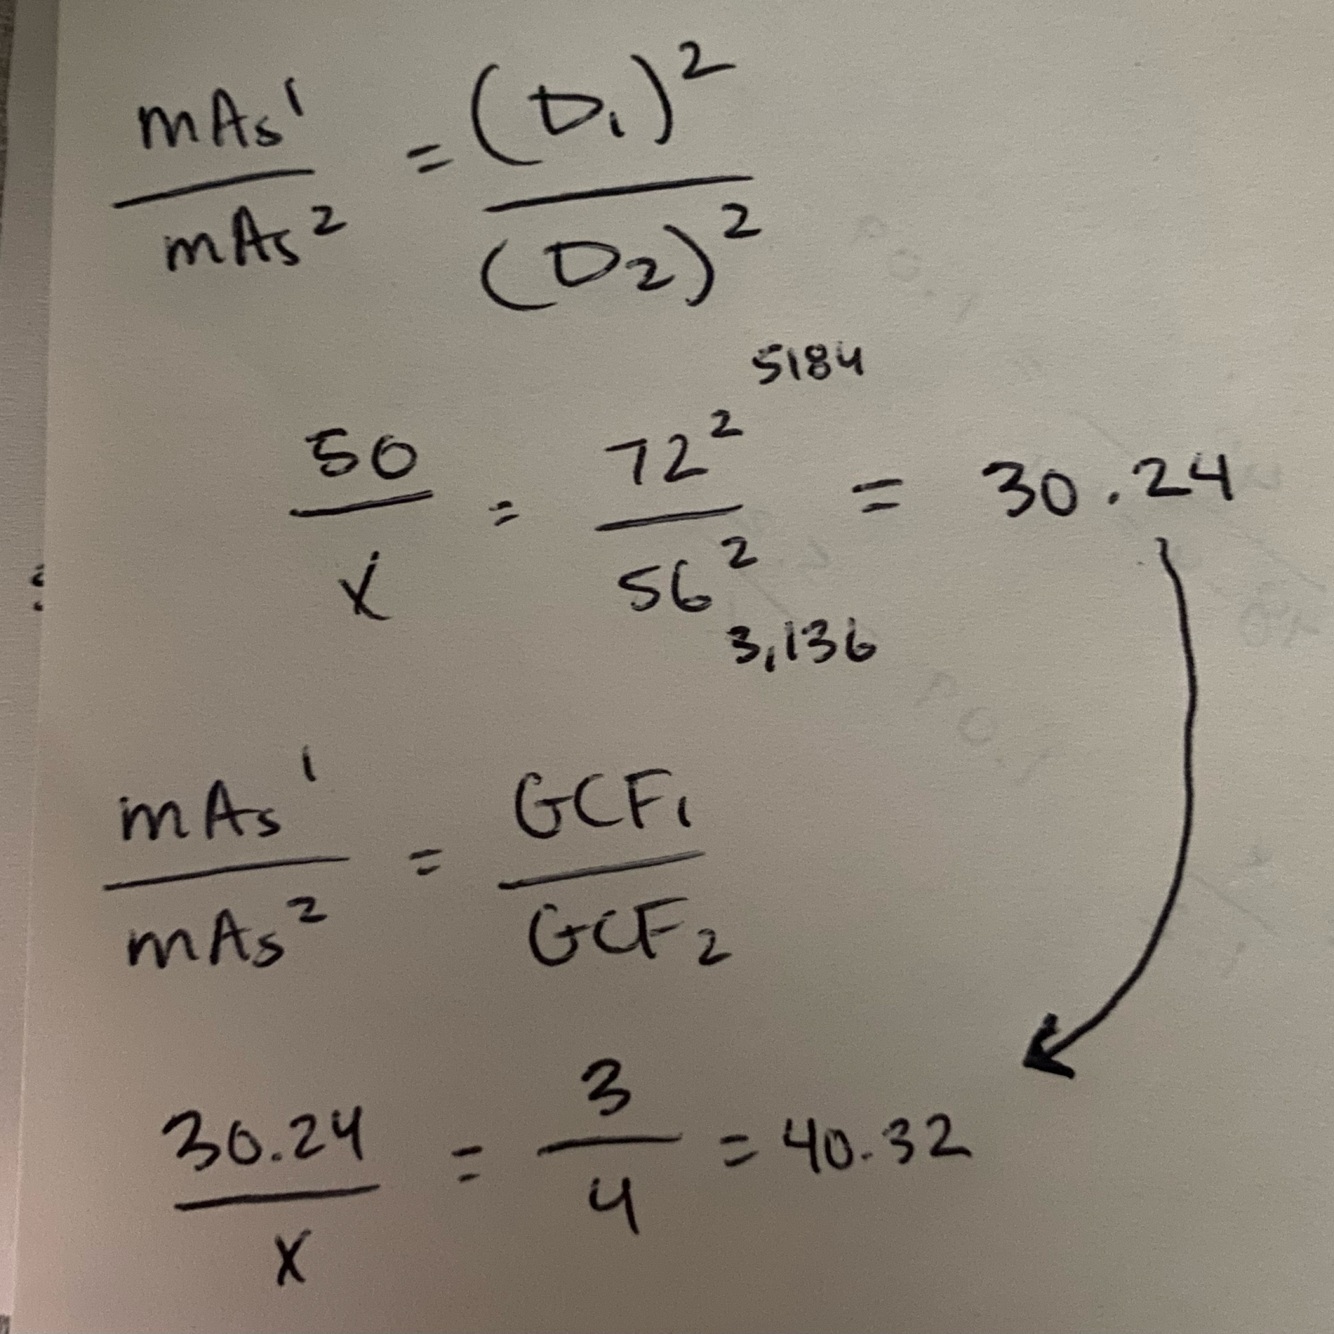 mAs¹ / mAs² = (D₁)² / (D₂)²
5184
50 / x = 72² / 56² = 30.24
3,136
mAs¹ / mAs² = GCF₁ / GCF₂
30.24 / x = 3 / 4 = 40.32